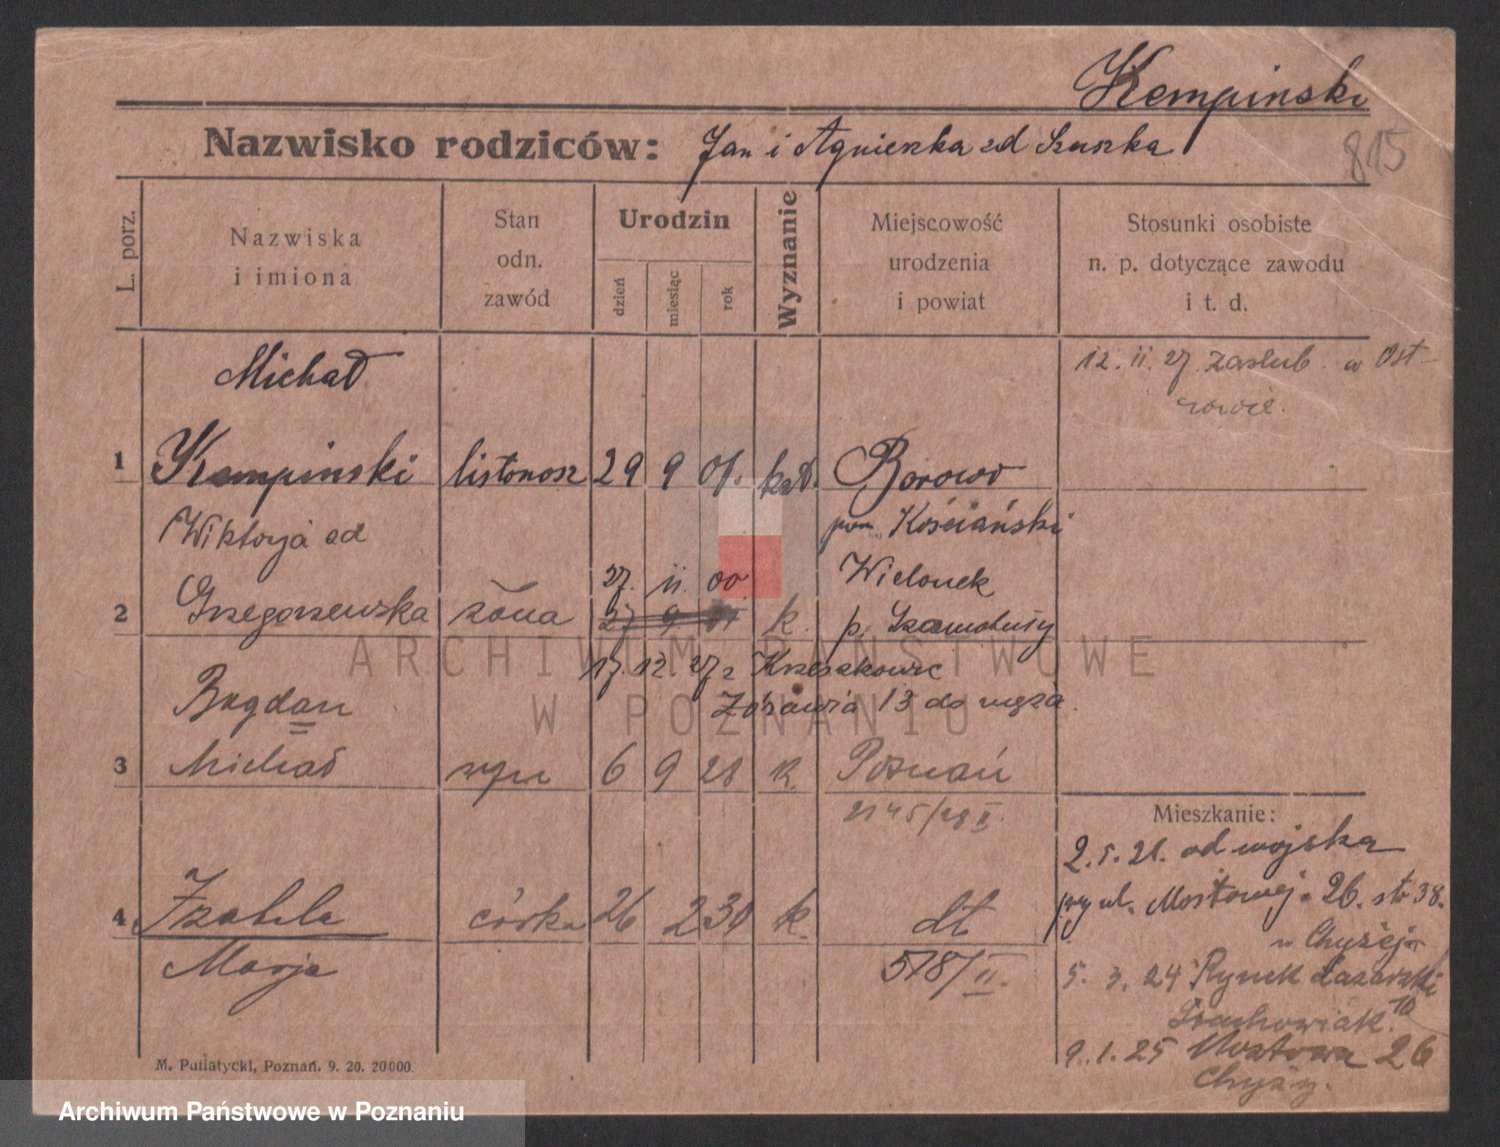 Kempinski
Nazwisko rodziców: Jan i Agnieszka zd Szuszka
815
L. porz.
Nazwiska
i imiona
Stan
odn.
zawód
Urodzin
dzień
miesiąc
rok
Wyznanie
Miejscowość
urodzenia
i powiat
Stosunki osobiste
n. p. dotyczące zawodu
i t. d.
Michał
12. II. 27. zaślub. w Ost-
rowie.
1 Kempinski listonosz 29 9 01. kat. Borowo
pow. Kościański
Wiktorja zd
27. 11. 00. Wielonek
2 Grzegorzewska żona 27 9 k. p. Szamotuły
17. 12. 27 z
Bogdan
13 do męża.
3 Michał syn 6 9 28 k. Poznań
2145/28 II.
Mieszkanie:
2. 5. 21. od wojska
przy ul. Mostowej. 26. str 38.
4 Izabela córka 26 2 30 k. dt
u Chyżej
Marja
518/II.
5. 3. 24 Rynek Łazarski
10
9. 1. 25 Mostowa 26
Chyży.
M. Putiatycki, Poznań. 9. 20. 20000
ARCHIWUM PAŃSTWOWE
W POZNANIU
Archiwum Państwowe w Poznaniu